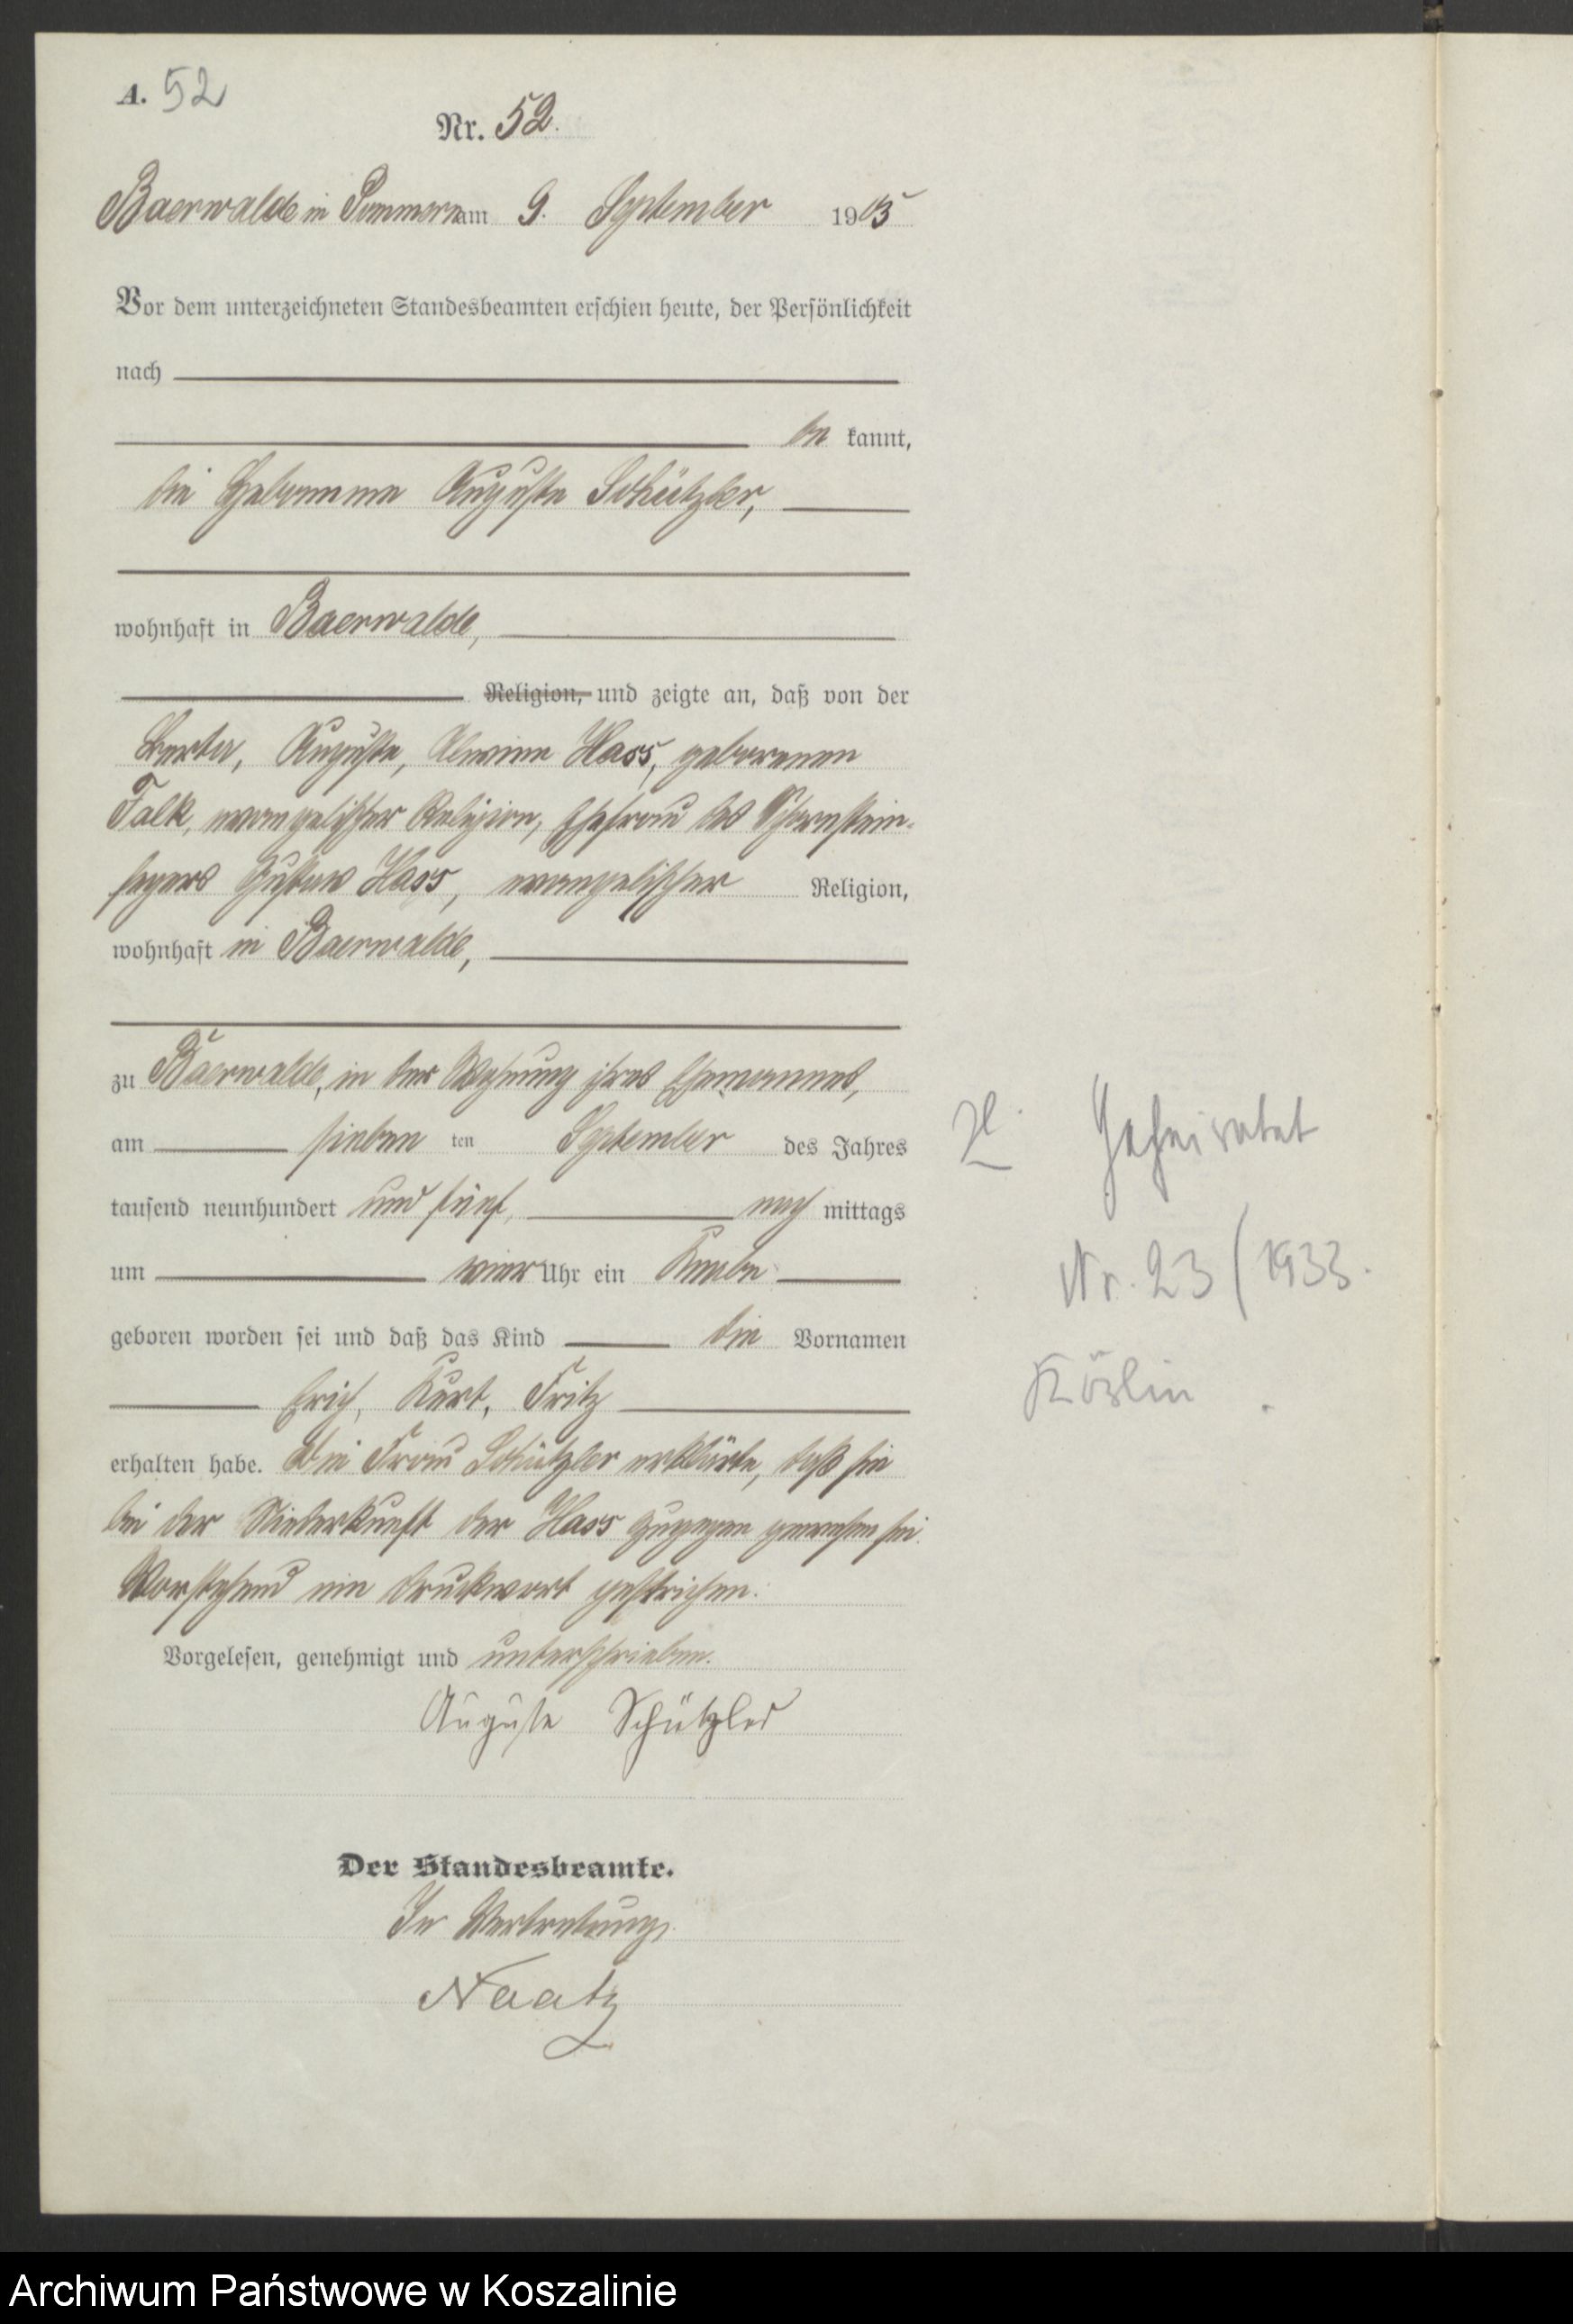 A. 52
Nr. 52.
Baerwalde in Pommern am 9. September 1905
Vor dem unterzeichneten Standesbeamten erschien heute, der Persönlichkeit
nach
be kannt,
die Hebamme Auguste Schützler,
wohnhaft in Baerwalde,
Religion, und zeigte an, daß von der
Berta, Auguste, Alwine Hass, geborenen
Falk, evangelischer Religion, Ehefrau des Schornstein-
fegers Gustav Hass, evangelischer Religion,
wohnhaft in Baerwalde,
zu Baerwalde, in der Wohnung ihres Ehemannes,
am sieben ten September des Jahres
tausend neunhundert und fünf, nach mittags
um vier Uhr ein Knabe
geboren worden sei und daß das Kind die Vornamen
Erich, Kurt, Fritz
erhalten habe. Die Frau Schützler erklärte, daß sie
bei der Niederkunft der Hass zugegen gewesen sei.
Vorstehend ein Druckwort gestrichen.
Vorgelesen, genehmigt und unterschrieben.
Auguste Schützler
Der Standesbeamte.
In Vertretung.
Naatz
H. Geheiratet
Nr. 23/1933.
Köslin.
Archiwum Państwowe w Koszalinie